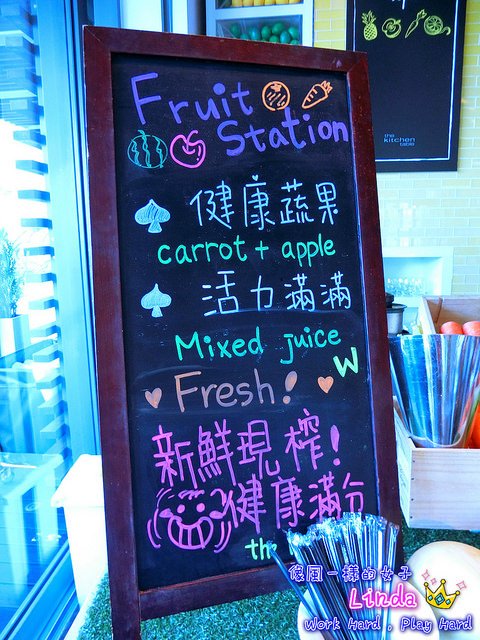 Fruit
Station
健康蔬果
carrot + apple
活力滿滿
Mixed juice
W
Fresh!
新鮮現榨!
健康滿分
the
the
kitchen
table
像風一樣的女子
Linda
Work Hard , Play Hard